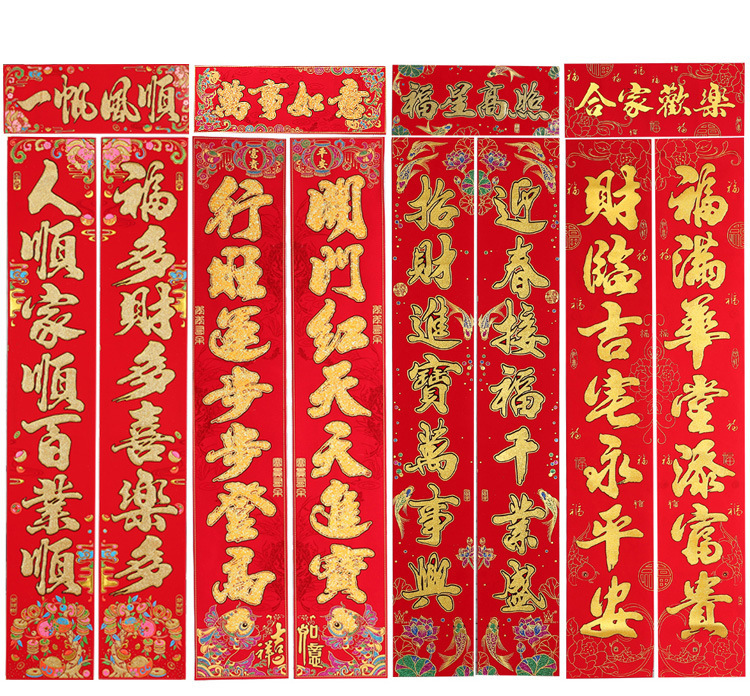 一帆風順
福多財多喜樂多
人順家順百業順
萬事如意
開門紅天天進寶
行旺運步步登高
如意
吉祥
福星高照
迎春接福千業盛
招財進寶萬事興
合家歡樂
福滿華堂添富貴
財臨吉宅永平安